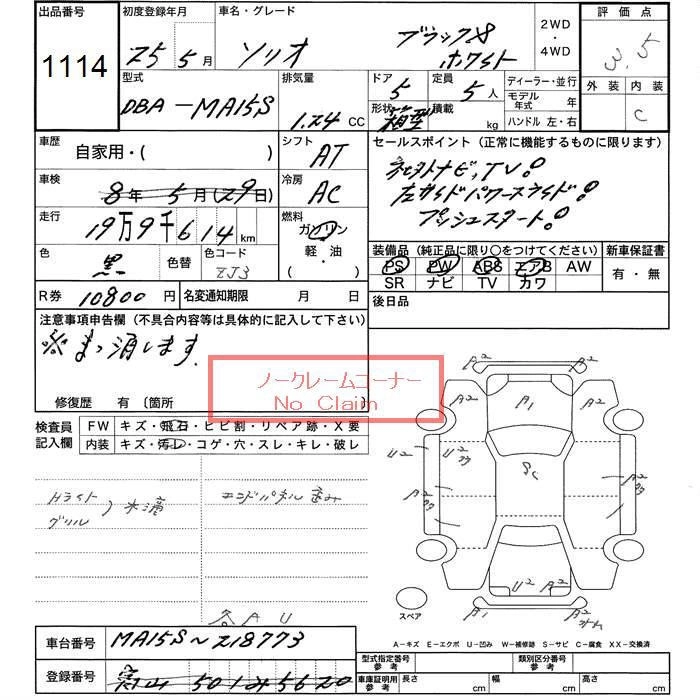 出品番号 初度登録年月 車名・グレード 2WD ・ 4WD 評価点
1114 25年 5月 ソリオ ブラック& ホワイト 3.5
型式 排気量 ドア 定員 ディーラー・並行 外装 内装
DBA-MA15S 1.24 CC 5 5人 モデル年式 年 C
形状 箱型 積載 kg ハンドル 左・右
車歴 自家用・( ) シフト AT セールスポイント(正常に機能するものに限ります)
車検 8年 5月(29日) 冷房 AC
左サイドパワースライド!
プッシュスタート!
走行 19万9千614km 燃料 ガソリン 軽・油 ( ・ )
色 黒 色替 色コード ZJ3
装備品(純正品に限り○をつけてください) 新車保証書
PS PW ABS エアB AW 有・無
SR ナビ TV カワ
R券 10800円 名変通知期限 月 日 後日品
注意事項申告欄(不具合内容等は具体的に記入して下さい)
※まっ消します.
ノークレームコーナー
No Claim
修復歴 有 〔箇所
検査員記入欄 FW キズ・飛石・ヒビ割・リペア跡・X要
内装 キズ・汚レ・コゲ・穴・スレ・キレ・破レ
Hライト グリル ) 水滴 エンドパネル歪み
A2 A2
A2 A1 A2
U2 SC
U2 A2
A1 A2
スペア
A-キズ E-エクボ U-凹み W-補修跡 S-サビ C-腐食 XX-交換済
車台番号 MA15S~218773
登録番号 富山 501 み 5620
型式指定番号 参考 類別区分番号 参考
車庫証明用 参考 長さ cm 幅 cm 高さ cm